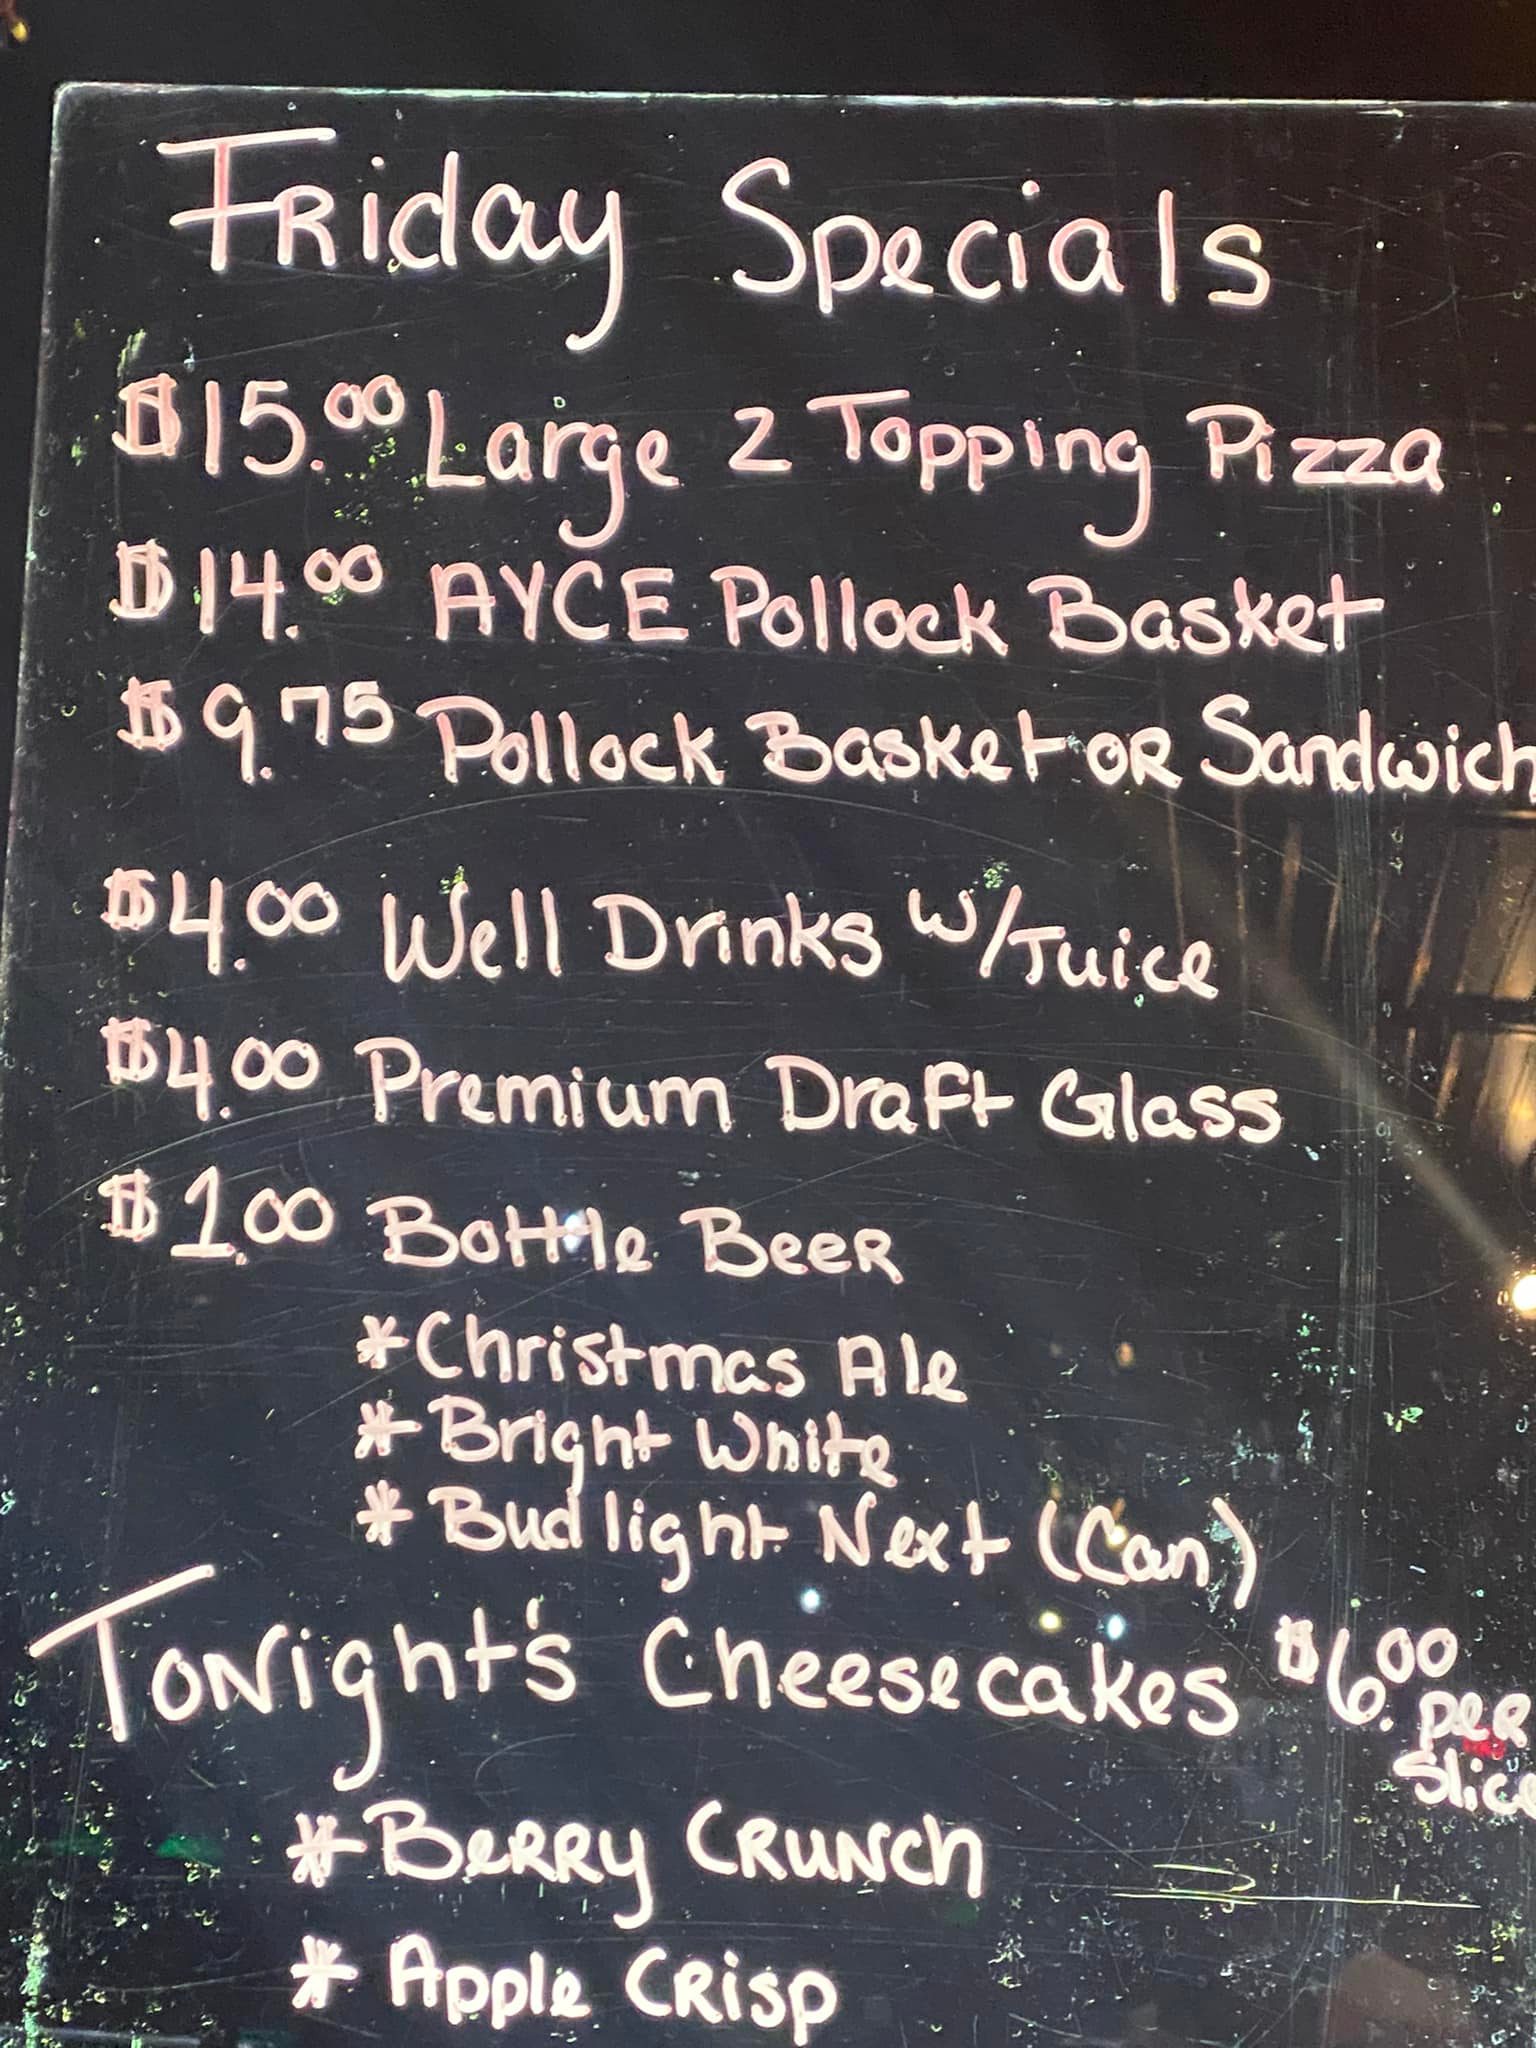 Friday Specials
$15.00 Large 2 Topping Pizza
$14.00 AYCE Pollock Basket
$9.75 Pollock Basket or Sandwich
$4.00 Well Drinks w/Juice
$4.00 Premium Draft Glass
$1.00 Bottle Beer
*Christmas Ale
*Bright White
*Bud light Next (Can)
Tonight's Cheesecakes $6.00 per
Slice
*Berry Crunch
*Apple Crisp